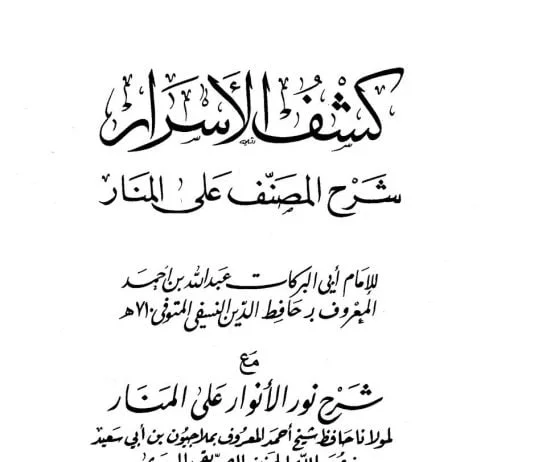 كشف الأسرار
شرح المصنّف على المنار
للإمام أبي البركات عبدالله بن أحمد
المعروف بحافظ الدين النسفي المتوفى ٧١٠هـ
مع
شرح نور الأنوار على المنار
لمولانا حافظ شيخ أحمد المعروف بملاجيون بن أبي سعيد